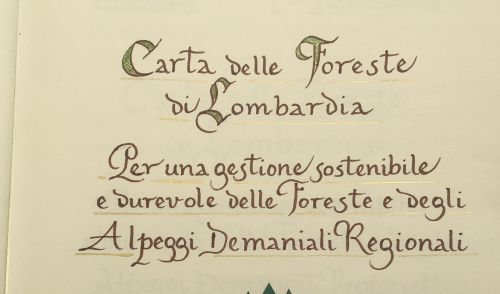 Carta delle Foreste
di Lombardia
Per una gestione sostenibile
e durevole delle Foreste e degli
Alpeggi Demaniali Regionali